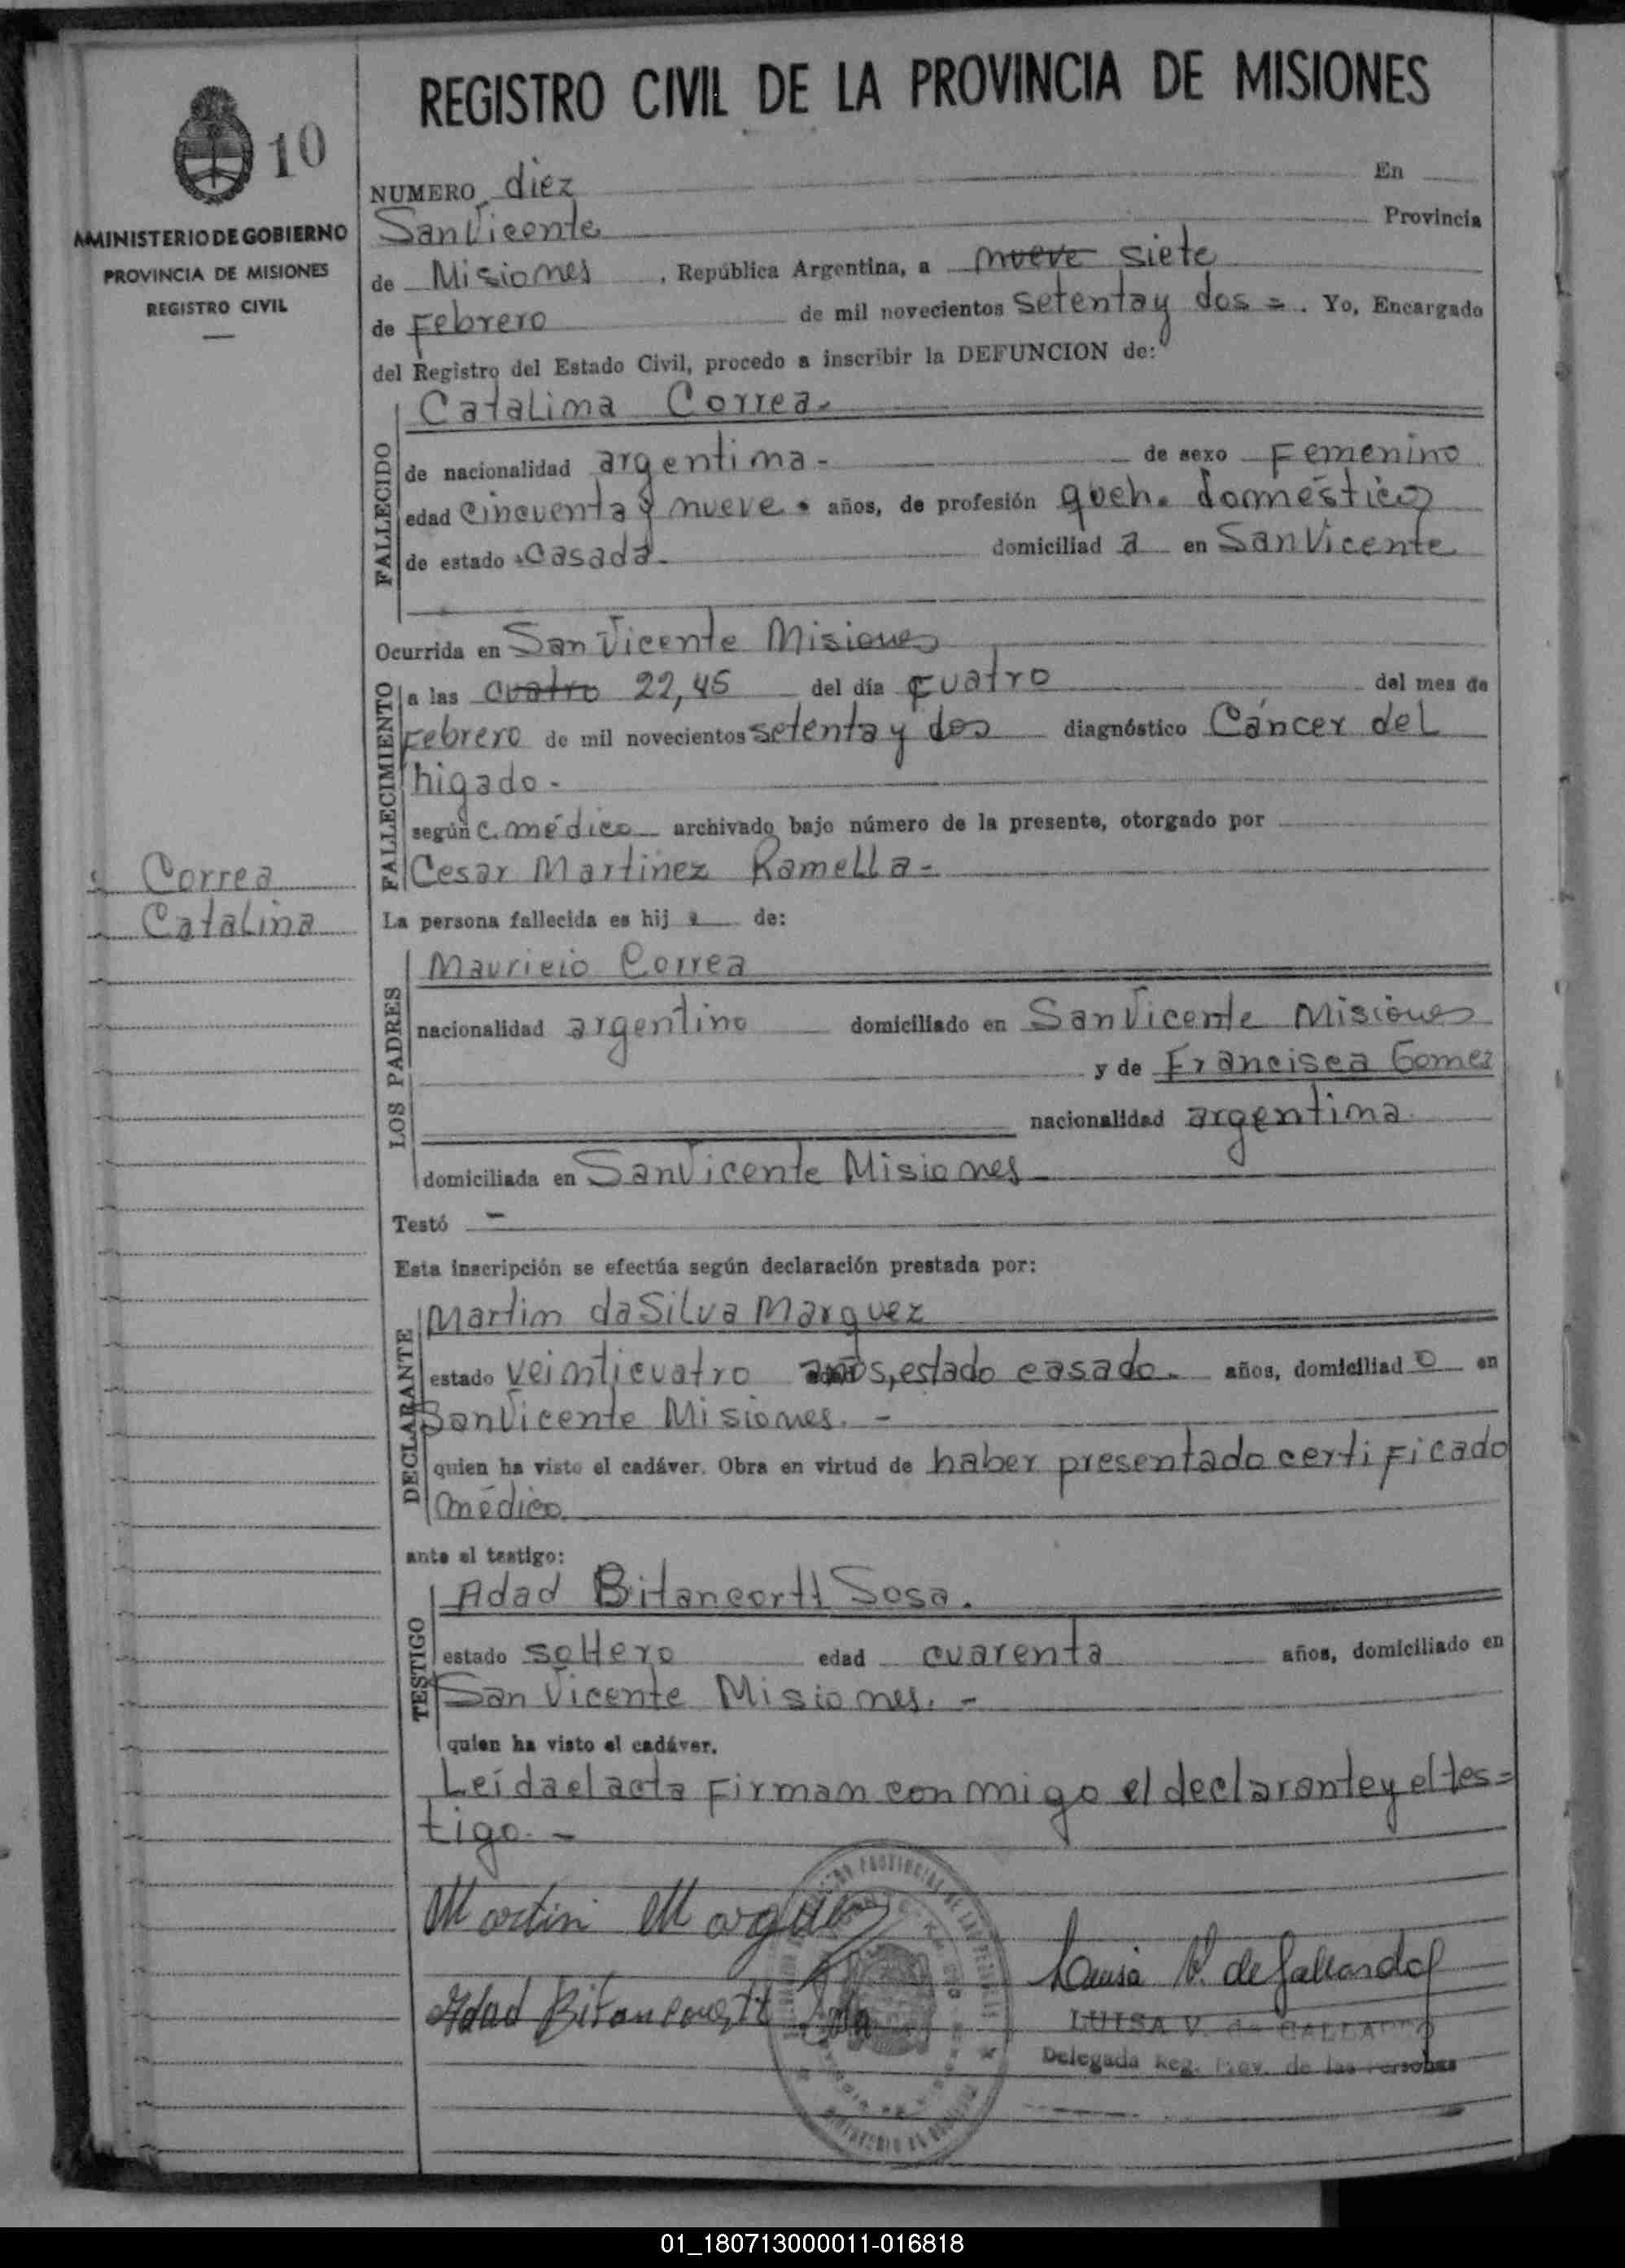 REGISTRO CIVIL DE LA PROVINCIA DE MISIONES
10
MINISTERIO DE GOBIERNO
PROVINCIA DE MISIONES
REGISTRO CIVIL
NUMERO diez En
San Vicente Provincia
de Misiones, República Argentina, a nueve siete
de Febrero de mil novecientos setenta y dos =. Yo, Encargado
del Registro del Estado Civil, procedo a inscribir la DEFUNCION de:
FALLECIDO
Catalina Correa.
de nacionalidad argentina - de sexo Femenino
edad cincuenta y nueve. años, de profesión queh. domésticos
de estado casada. domiciliad a en San Vicente
Ocurrida en San Vicente Misiones
FALLECIMIENTO
a las cuatro 22,45 del día cuatro del mes de
Febrero de mil novecientos setenta y dos diagnóstico Cáncer del
higado -
según c. médico archivado bajo número de la presente, otorgado por
Cesar Martinez Ramella -
Correa
Catalina
La persona fallecida es hij a de:
LOS PADRES
Mauricio Correa
nacionalidad argentino domiciliado en San Vicente Misiones
y de Francisca Gomez
nacionalidad argentina
domiciliada en San Vicente Misiones
Testó -
Esta inscripción se efectúa según declaración prestada por:
DECLARANTE
Martin da Silva Marquez
estado veinticuatro años, estado casado. años, domiciliad o en
San Vicente Misiones. -
quien ha visto el cadáver. Obra en virtud de haber presentado certificado
médico.
ante el testigo:
TESTIGO
Adad Bitancortt Sosa.
estado soltero edad cuarenta años, domiciliado en
San Vicente Misiones. -
quien ha visto el cadáver.
Leída el acta firman conmigo el declarante y el tes=
tigo. -
Martin Marquez
Luisa V. de Gallardo
Adad Bitancourtt Sosa
LUISA V. de GALLARDO
Delegada Reg. Prov. de las Personas
01_180713000011-016818